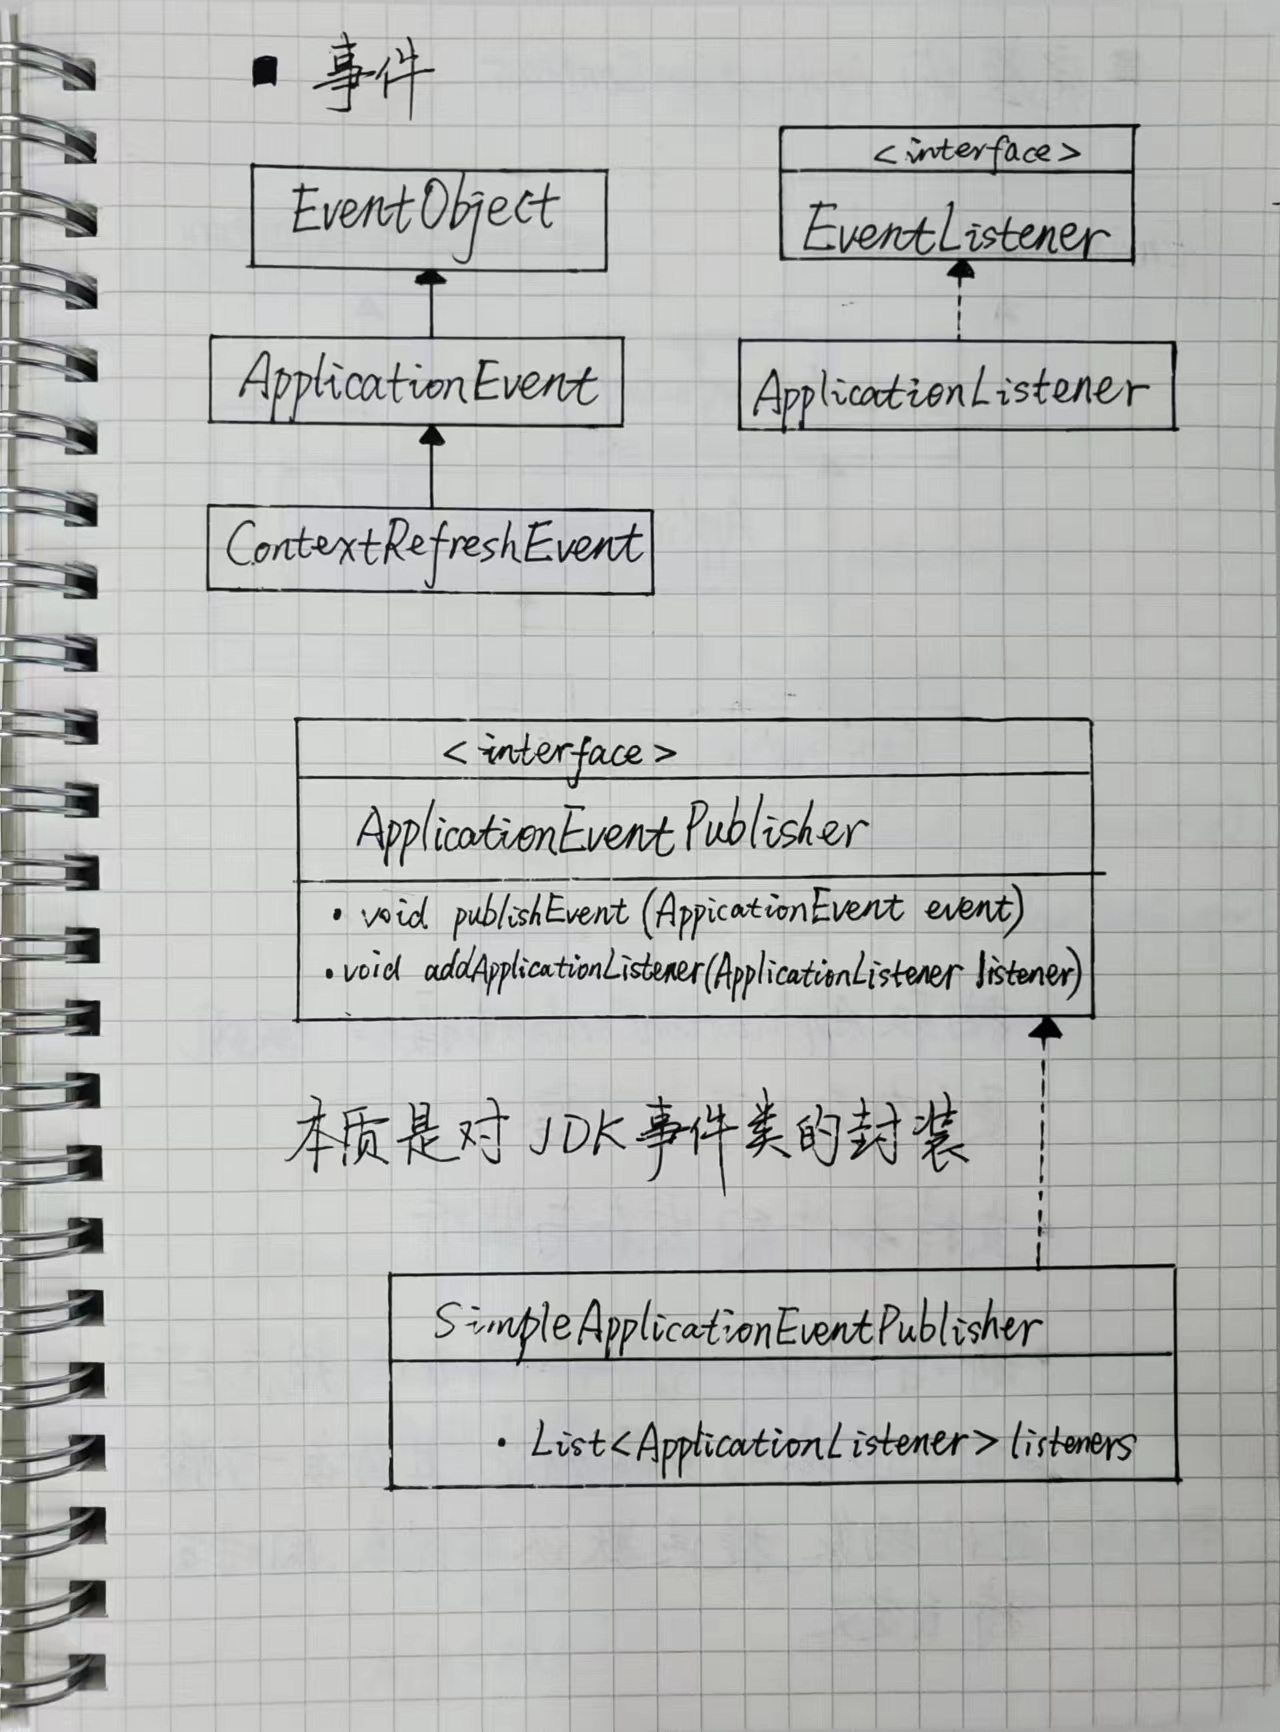 ■ 事件
EventObject
ApplicationEvent
ContextRefreshEvent
<interface>
EventListener
ApplicationListener
<interface>
ApplicationEventPublisher
· void publishEvent (AppicationEvent event)
· void addApplicationListener(ApplicationListener listener)
本质是对 JDK事件类的封装
SimpleApplicationEventPublisher
· List<ApplicationListener> listeners